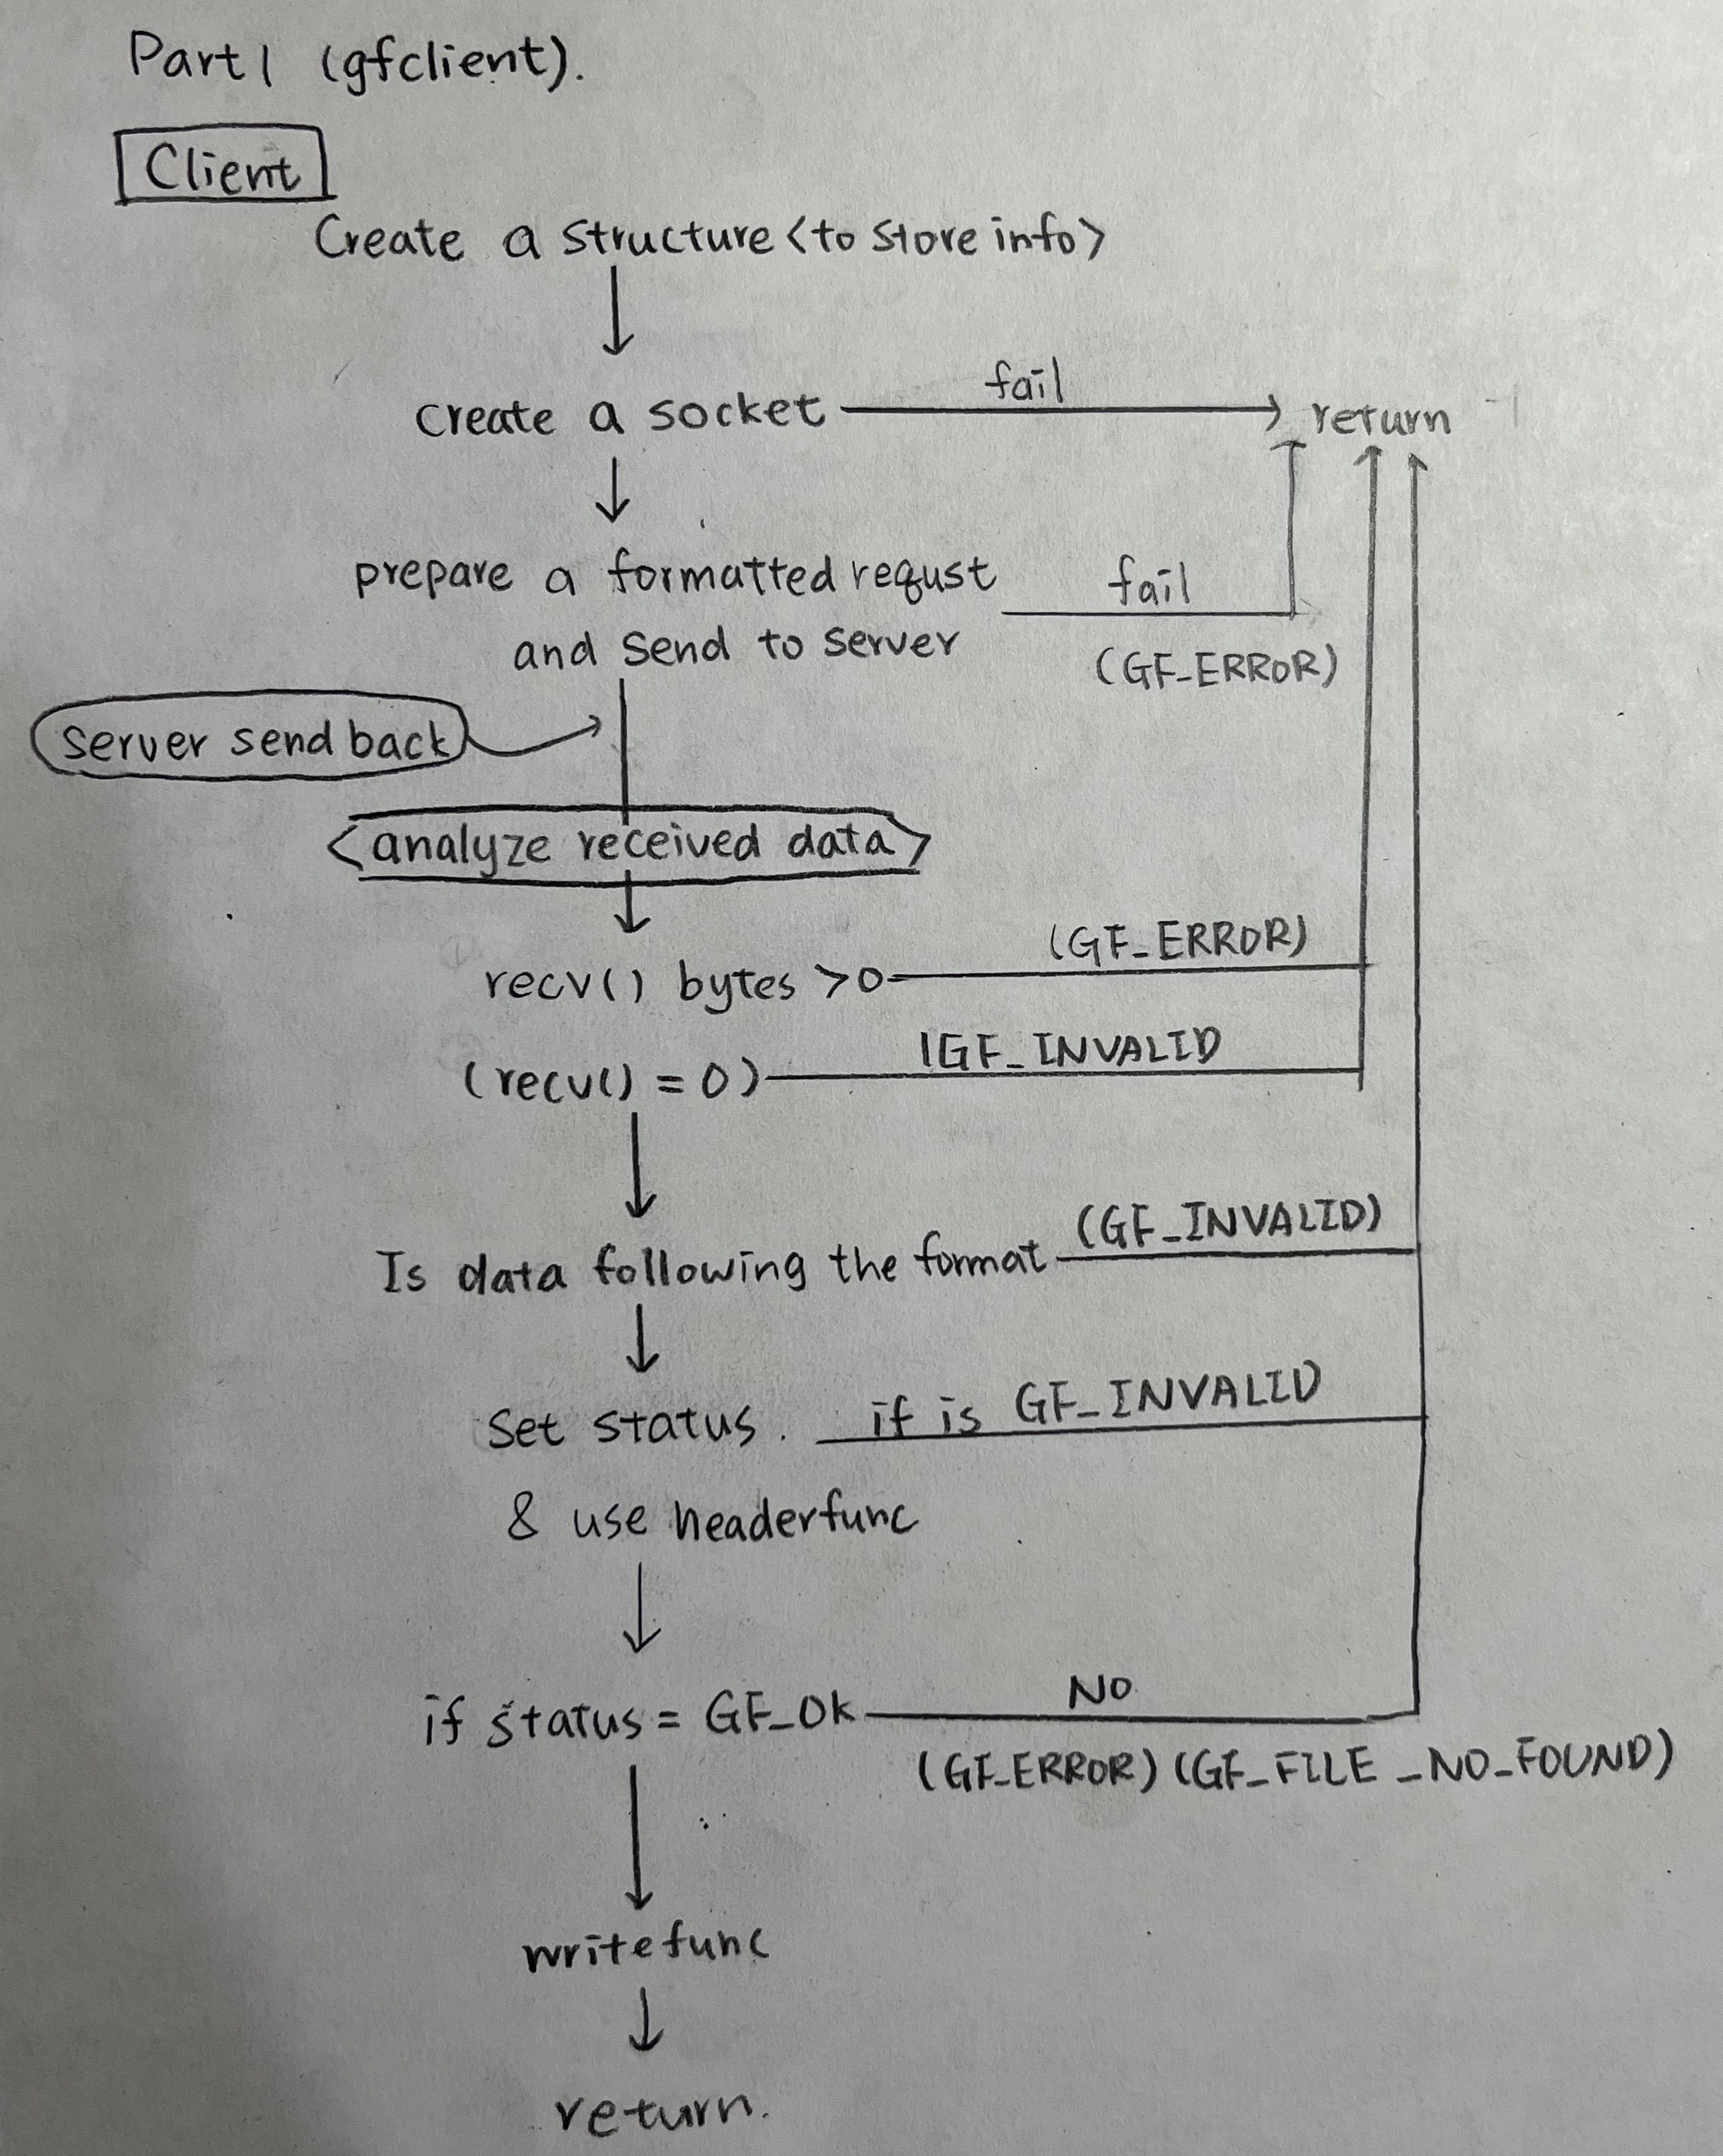 Part 1 (gfclient).
Client
Create a structure <to store info>
fail
create a socket
return -1
prepare a formatted requst
fail
and send to server
(GF_ERROR)
server send back
<analyze received data>
(GF_ERROR)
recv() bytes >0
GF_INVALID
(recv() = 0)
(GF_INVALID)
Is data following the format
Set status. if is GF_INVALID
& use headerfunc
NO
if status = GF_OK
(GF_ERROR) (GF_FILE_NO_FOUND)
writefunc
return.